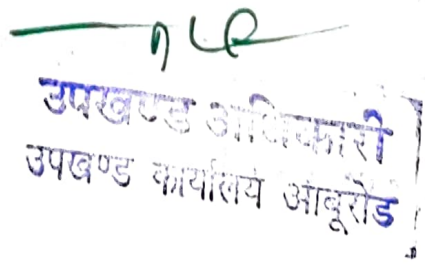 उपखण्ड अधिकारी
उपखण्ड कार्यालय आबूरोड